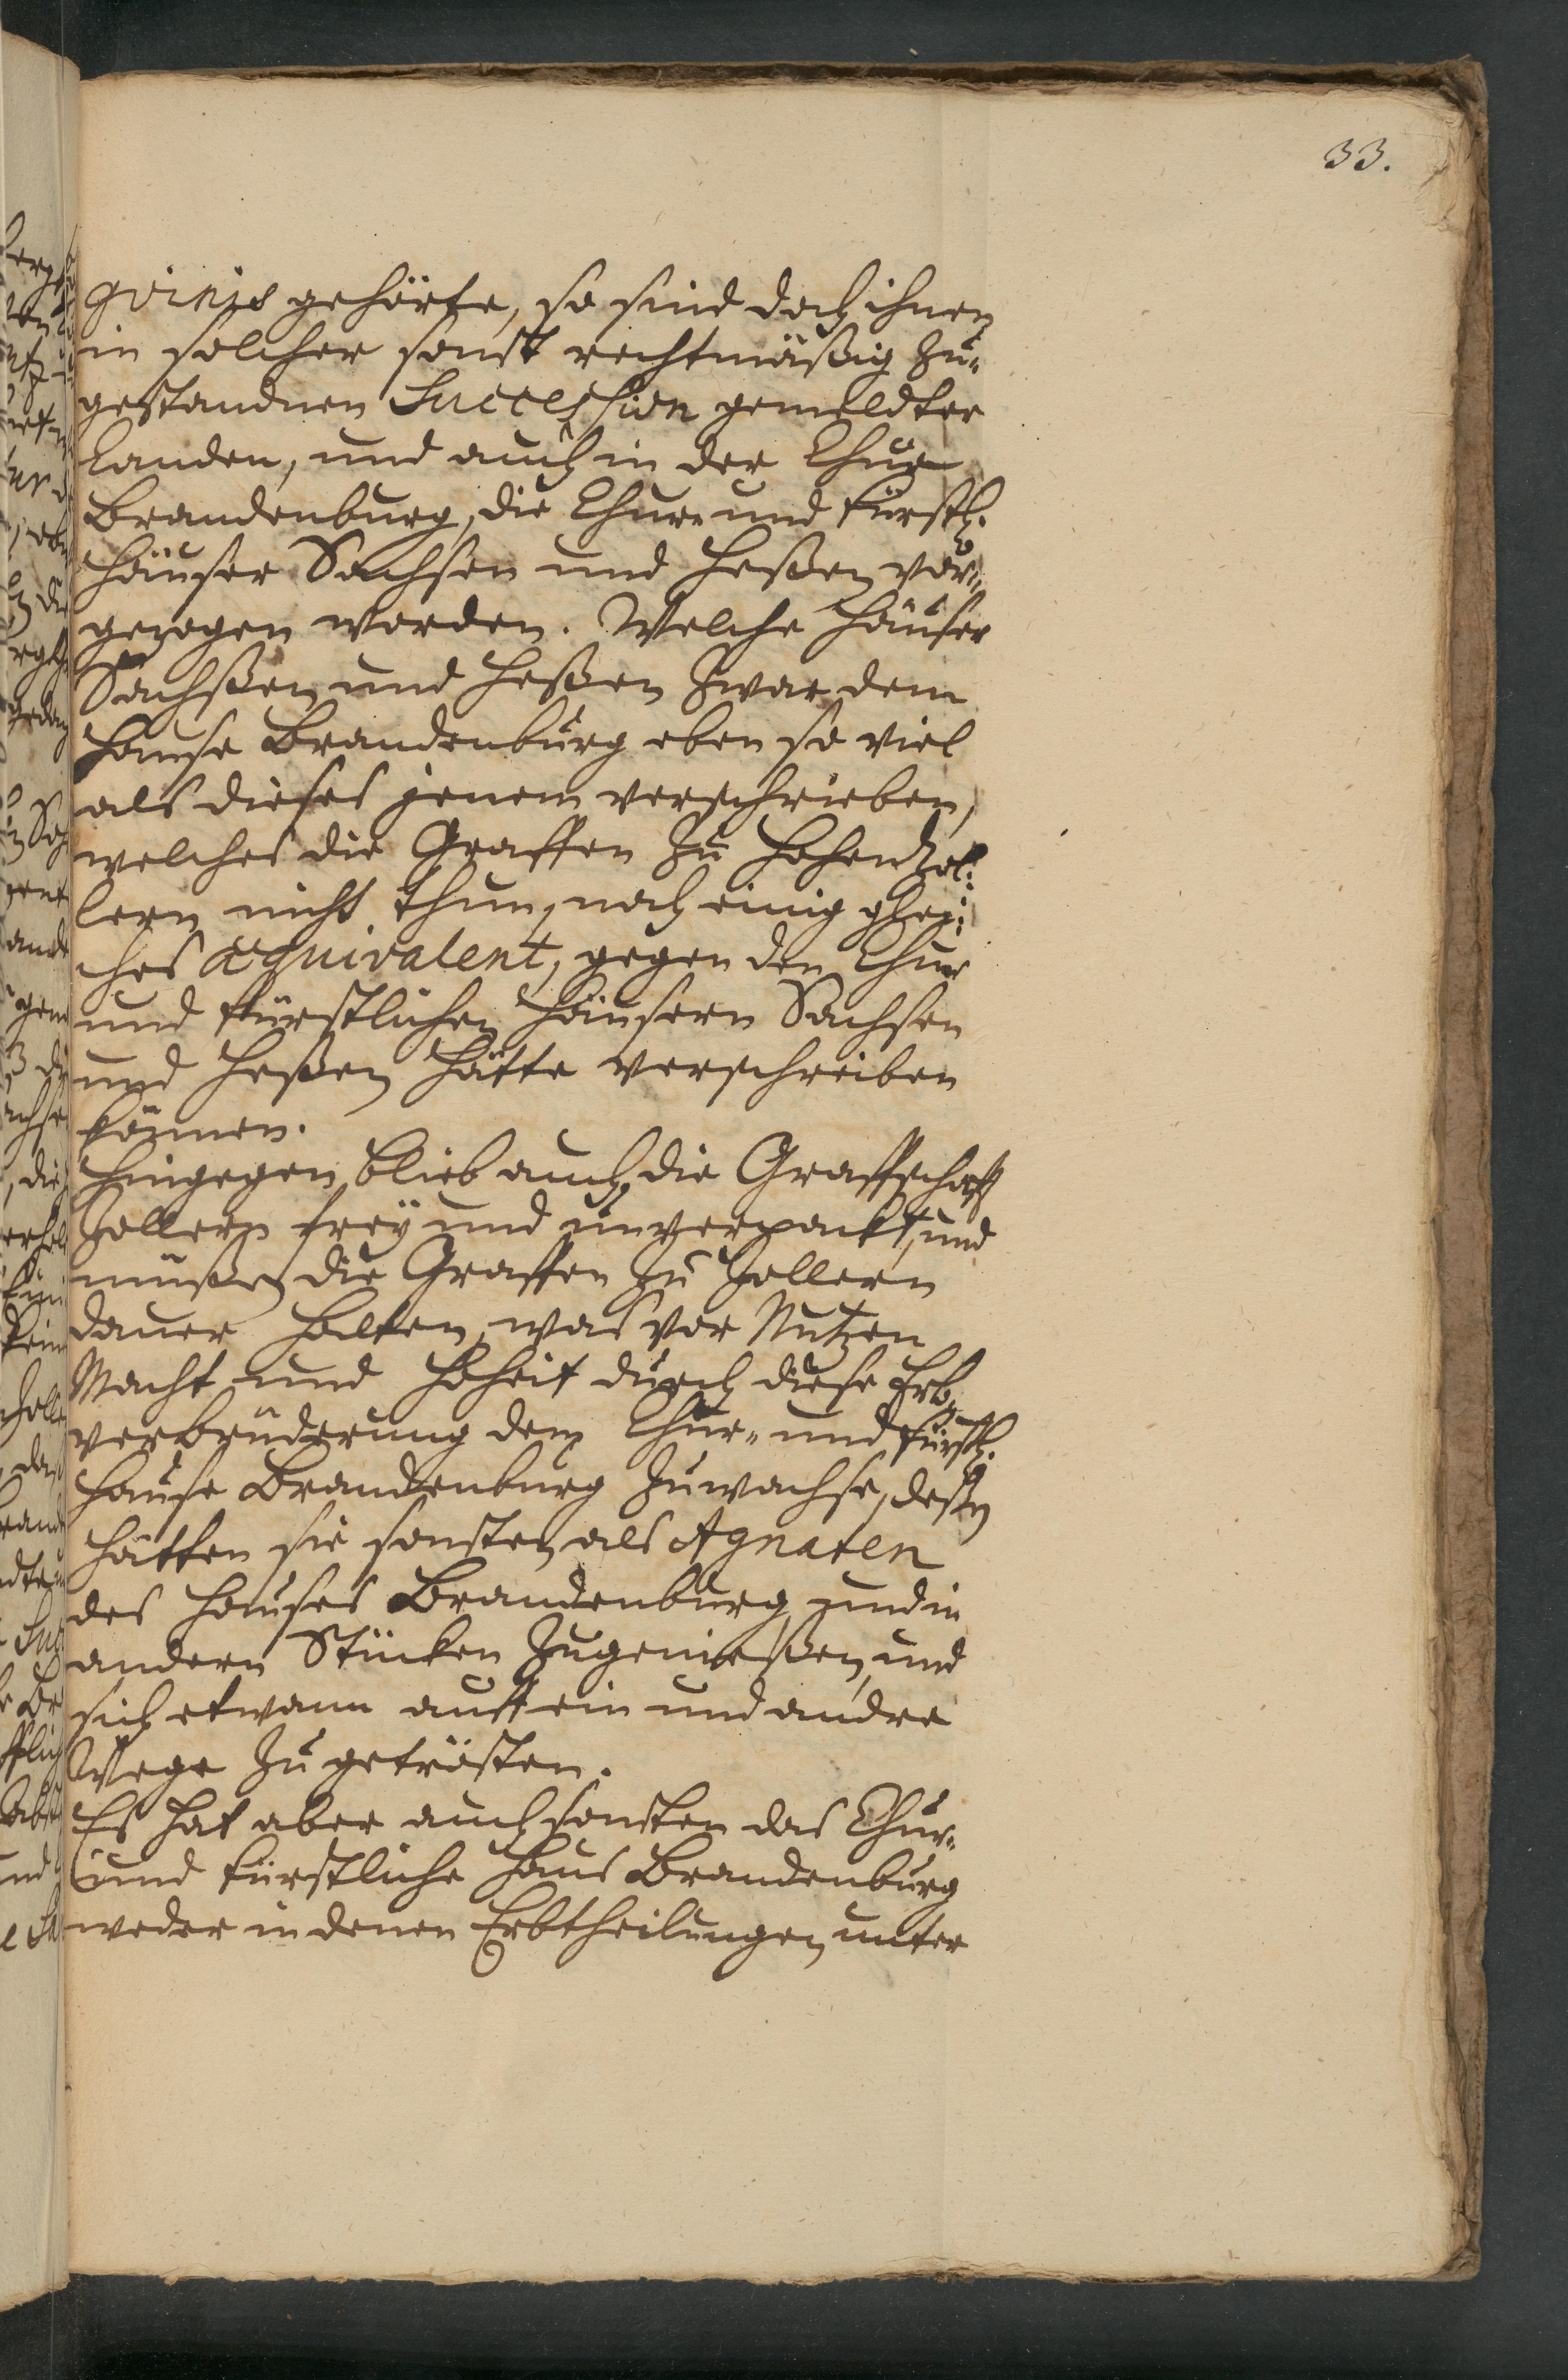 33.
gvinis gehörte, so sind doch ihnen
in solcher sonst rechtmäßig zu-
gestandnen Succession gemeldter
Landen, und auch in der Chur
Brandenburg, die Chur- und Fürstl.
Häuser Sachsen und Heßen vor-
gezogen worden. Welche Häuser
Sachßen und Heßen zwar dem
Hause Brandenburg eben so viel
als dieses jenem verschrieben,
welches die Graffen zu Hohenzol-
lern nicht thun, noch einig glei-
ches æquivalent, gegen den Chur
und Fürstlichen Häusern Sachsen
und Heßen hätte verschreiben
können.
Hingegen blieb auch die Graffschafft
Zollern frey und unverpackt, und
müßen die Graffen zu Zollern
davor halten, was vor Nutzen
Macht und Hoheit durch diese Erb-
verbrüderung dem Chur- und Fürstl.
Hause Brandenburg zuwachse, deßen
hätten sie sonsten als Agnaten
des Hauses Brandenburg, und in
andern Stücken zugenießen, und
sich etwann auff ein und andre
Wege zu getrösten.
Es hat aber auch sonsten das Chur-
und Fürstliche Haus Brandenburg
weder in denen Erbtheilungen unter